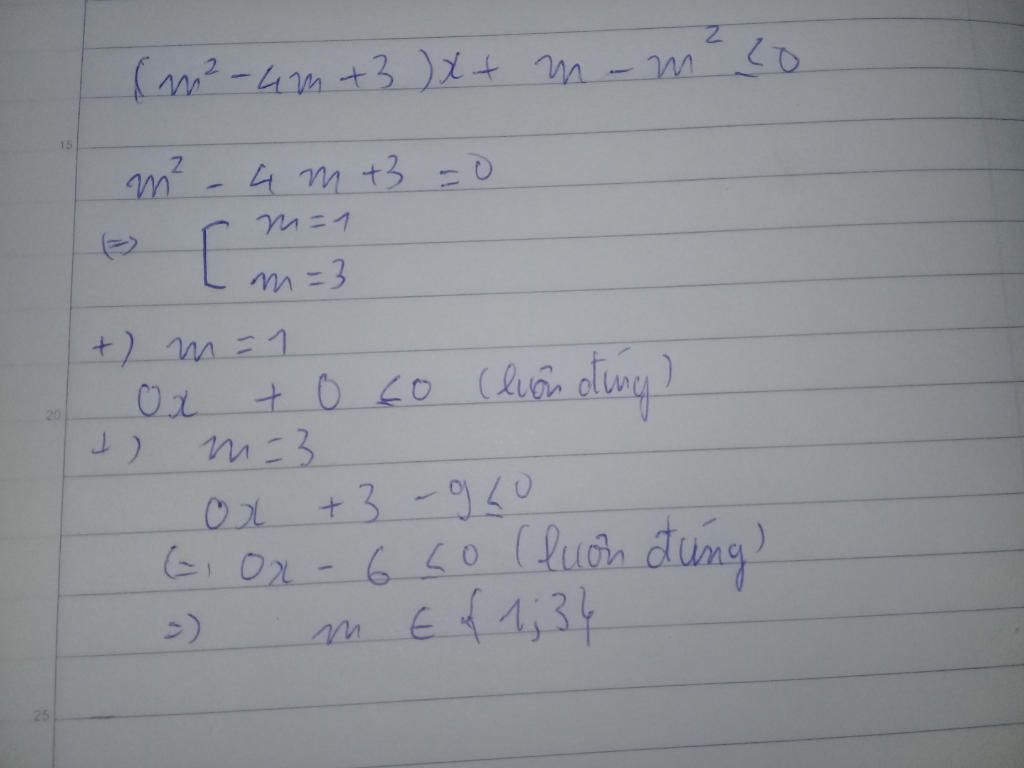 (m² - 4m + 3)x + m - m² ≤ 0
15
m² - 4m + 3 = 0
<=> [ m = 1
m = 3
+) m = 1
0x + 0 ≤ 0 (luôn đúng)
20
+) m = 3
0x + 3 - 9 ≤ 0
<=> 0x - 6 ≤ 0 (luôn đúng)
=) m ∈ {1;3}
25